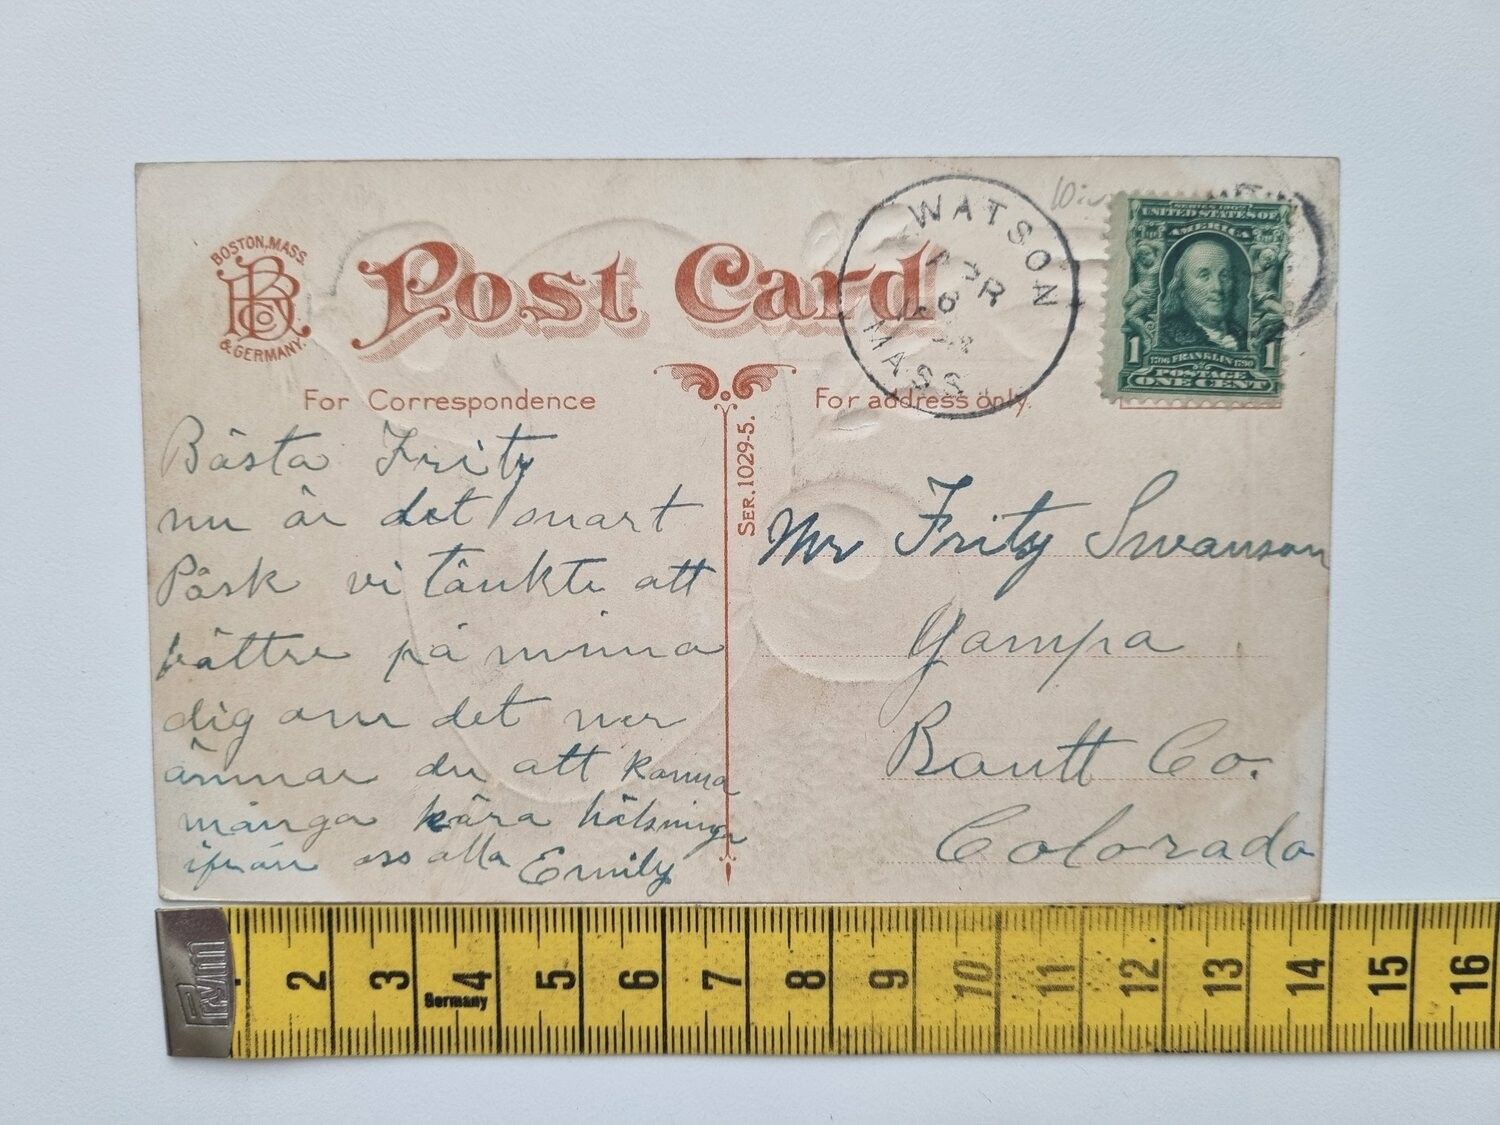 BOSTON, MASS.
& GERMANY.
Post Card
WATSON
APR
6
MASS
SERIES 1902
UNITED STATES OF
AMERICA
1 1706 FRANKLIN 1790 1
POSTAGE
ONE CENT
For Correspondence
For address only.
SER. 1029-5.
Bästa Fritz
nu är det snart
Påsk vi tänkte att
bättre på minna
dig om det ner
ämnar du att komma
många kära hälsninga
ifrån oss alla Emily
Mr Fritz Swanson
Yampa
Routt Co.
Colorado
prym
2 3 4 5 6 7 8 9 10 11 12 13 14 15 16
Germany